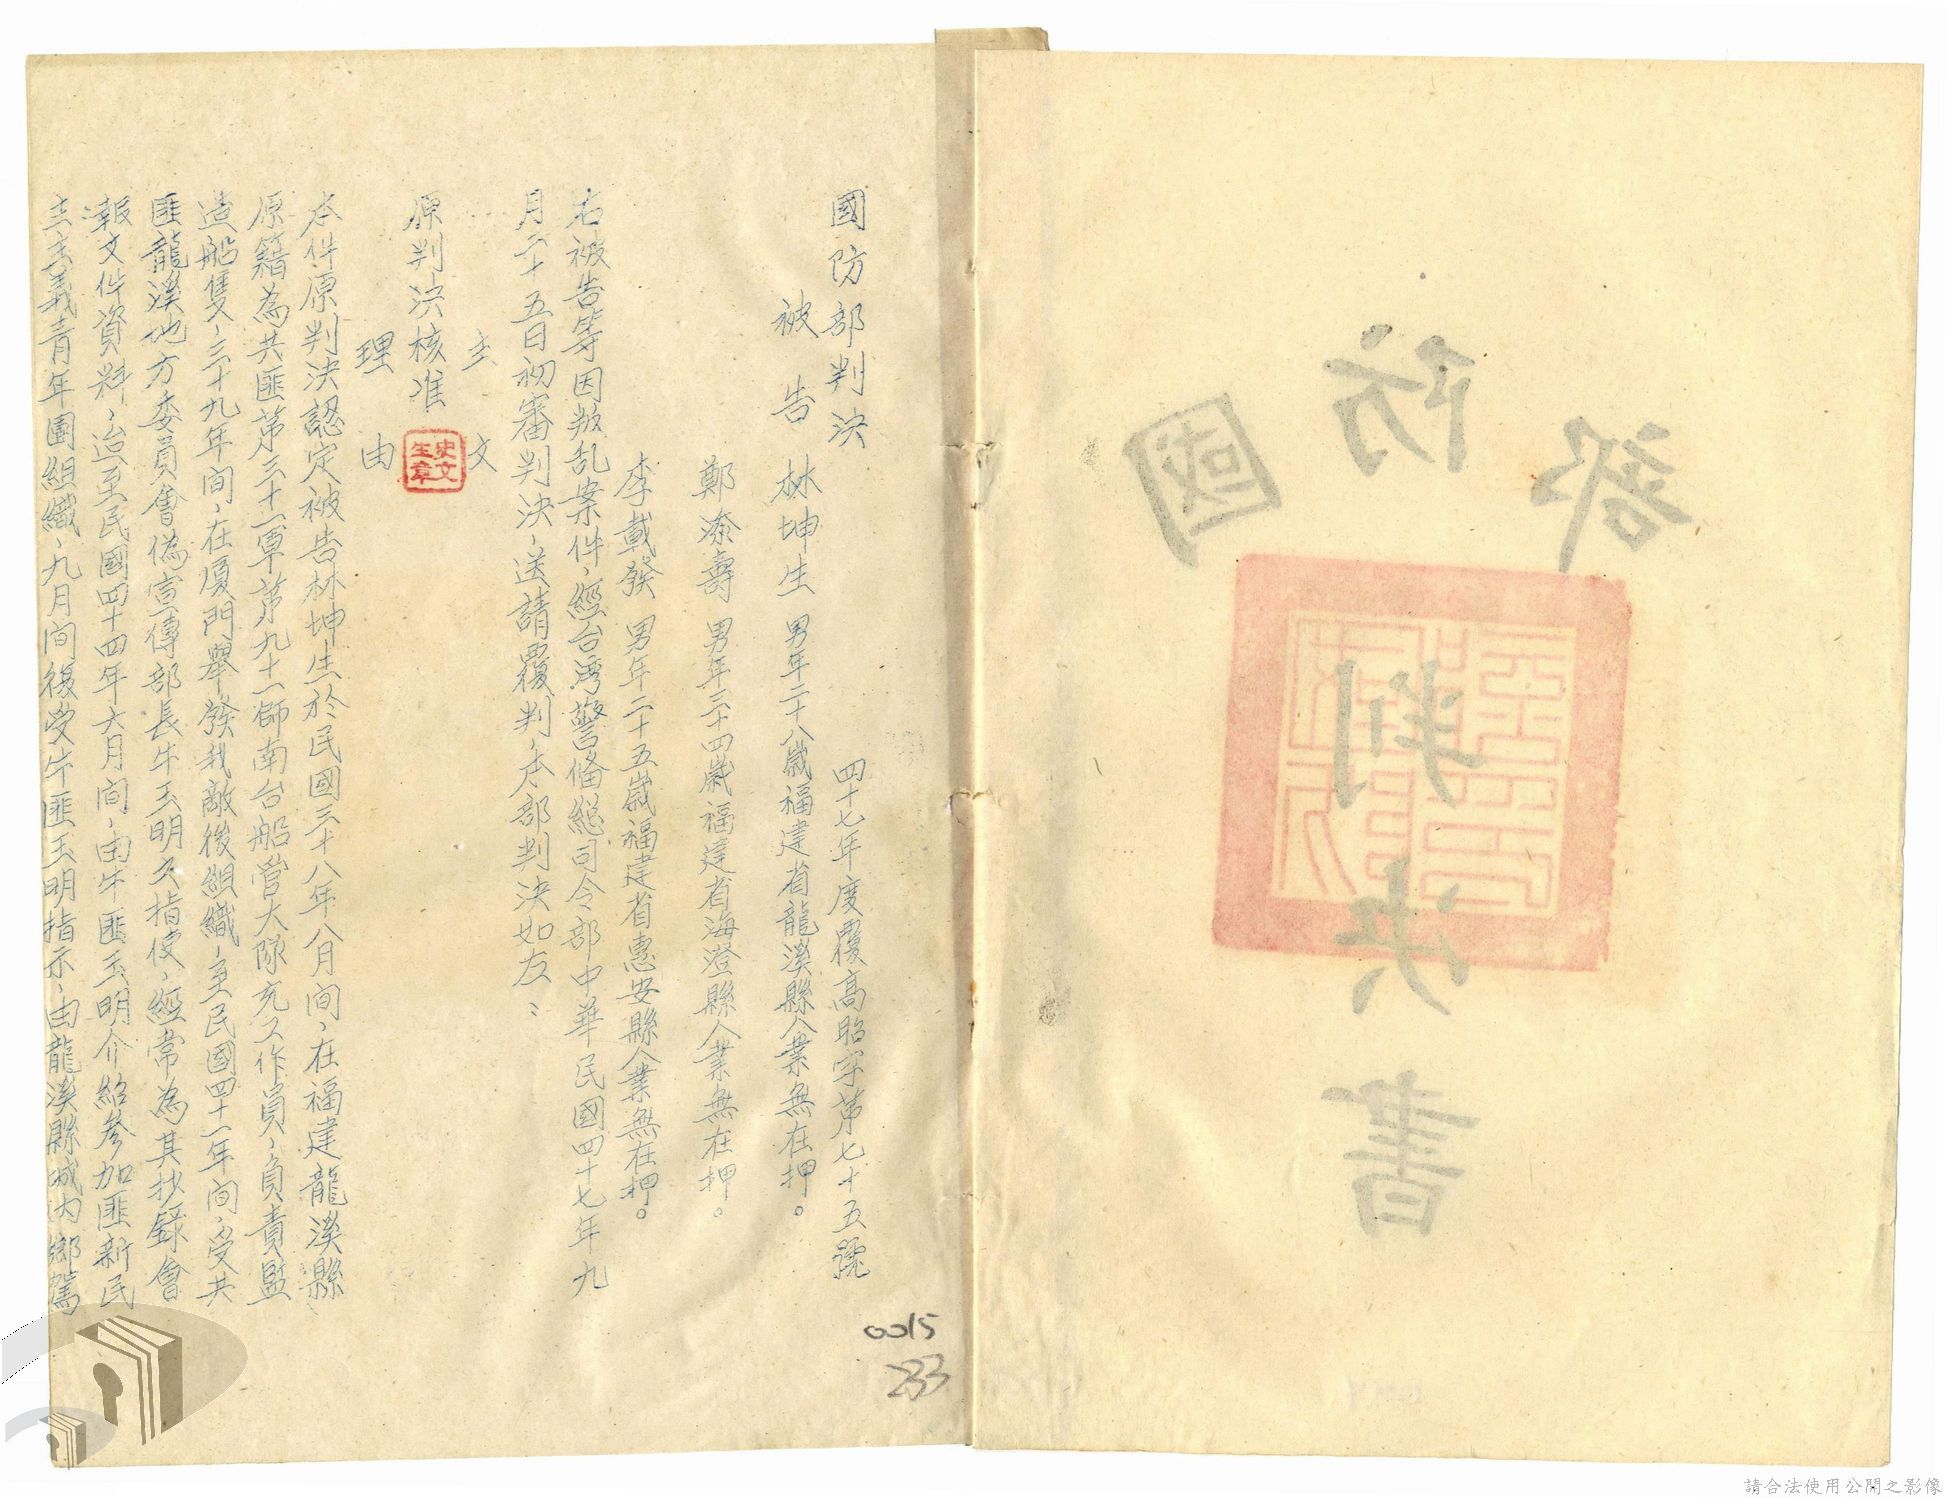 國防部
判決書
國防部判決
四十七年度覆高昭字第七十五號
被告 林坤生 男年二十八歲福建省龍溪縣人業無在押。
鄭添壽 男年三十四歲福建省海澄縣人業無在押。
李載發 男年二十五歲福建省惠安縣人業無在押。
右被告等因叛乱案件、經台湾警俻總司令部中華民國四十七年九
月二十五日初審判決、送請覆判、本部判決如左：
主文
原判決核准
史文生章
理由
本件原判決認定被告林坤生於民國三十八年八月间、在福建龍溪縣
原籍為共匪第三十一軍第九十一師南台船管大隊充工作員、負責監
造船隻、三十九年间、在厦門舉發我敵後組織、至民國四十一年间、受共
匪龍溪地方委員會偽宣傳部長牛玉明之指使、經常為其抄錄會
報文件資料、迨至民國四十四年六月间、由牛匪玉明介紹參加匪新民
主主義青年團組織、九月间復受牛匪玉明指示、由龍溪縣城内鄉駕
0015
233
請合法使用公開之影像